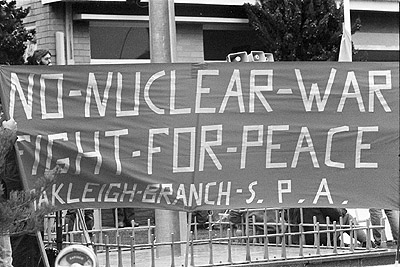 NO-NUCLEAR-WAR
FIGHT-FOR-PEACE
OAKLEIGH-BRANCH-S.P.A.